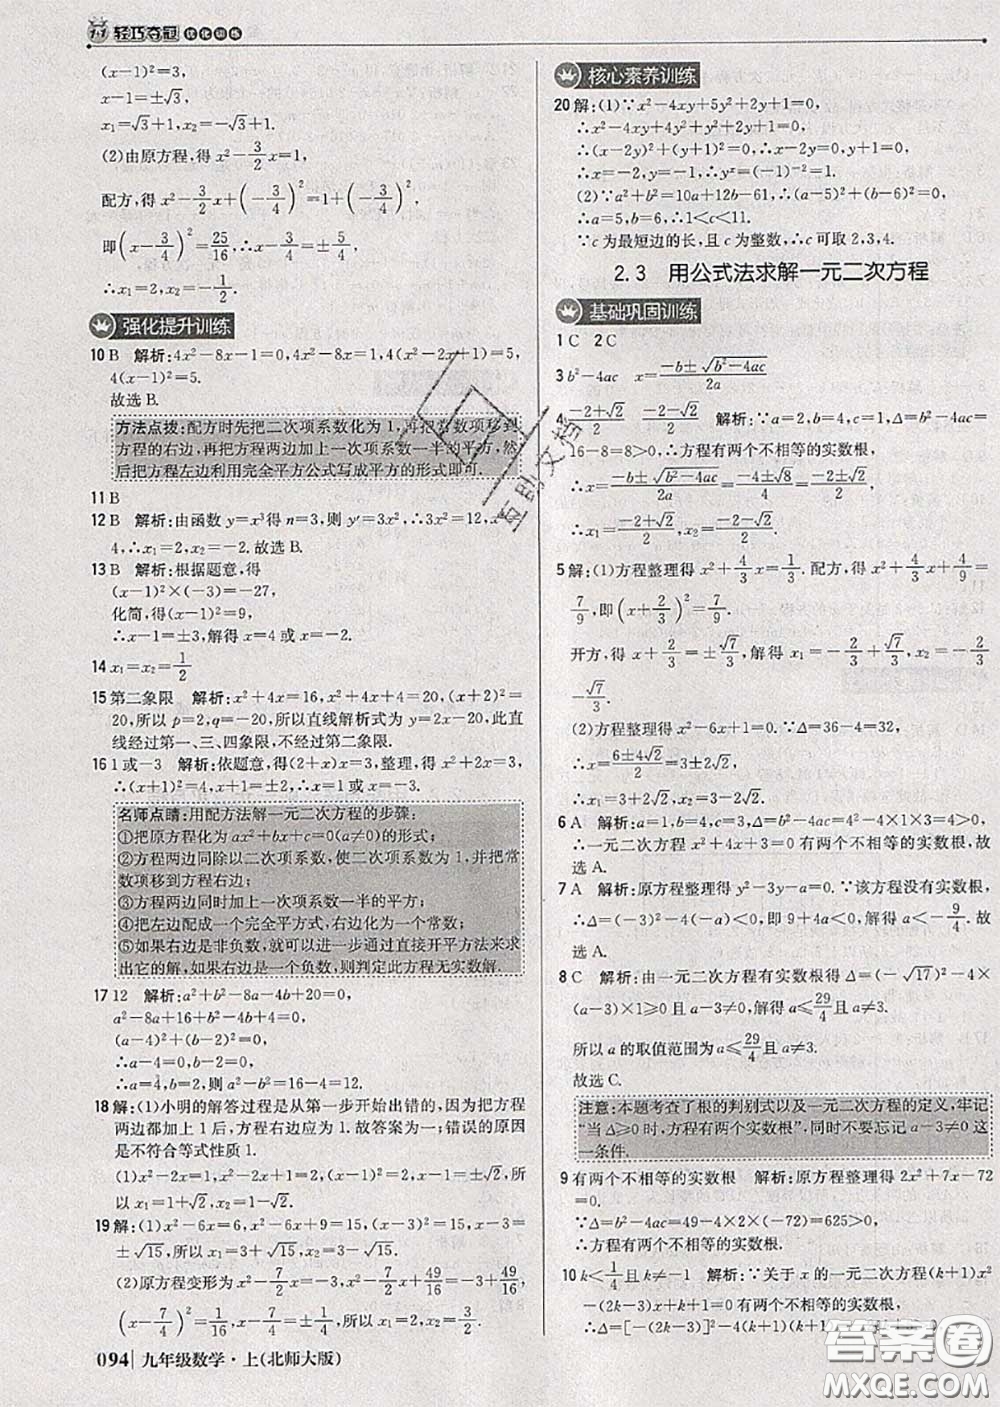 1+1 轻巧夺冠 优化训练
(x-1)²=3,
x-1=±√3,
x₁=√3+1,x₂=-√3+1.
(2)由原方程,得 x²-3/2x=1,
配方,得 x²-3/2x+(-3/4)²=1+(-3/4)²,
即(x-3/4)²=25/16,∴x-3/4=±5/4,
∴x₁=2,x₂=-1/2.
强化提升训练
10 B 解析:4x²-8x-1=0,4x²-8x=1,4(x²-2x+1)=5,
4(x-1)²=5.
故选 B.
方法点拨:配方时先把二次项系数化为 1,再把常数项移到
方程的右边,再把方程两边加上一次项系数一半的平方,然
后把方程左边利用完全平方公式写成平方的形式即可.
11 B
12 B 解析:由函数 y=x³得 n=3,则 y′=3x²,∴3x²=12,x²=
4,∴x₁=2,x₂=-2.故选 B.
13 B 解析:根据题意,得
(x-1)²×(-3)=-27,
化简,得(x-1)²=9,
∴x-1=±3,解得 x=4 或 x=-2.
14 x₁=x₂=1/2
15 第二象限 解析:x²+4x=16,x²+4x+4=20,(x+2)²=
20,所以 p=2,q=-20,所以直线解析式为 y=2x-20,此直
线经过第一、三、四象限,不经过第二象限.
16 1 或-3 解析:依题意,得(2+x)x=3,整理,得 x²+2x=3,
∴(x+1)²=4,x+1=±2,∴x=1 或 x=-3.
名师点睛:用配方法解一元二次方程的步骤:
①把原方程化为 ax²+bx+c=0(a≠0)的形式;
②方程两边同除以二次项系数,使二次项系数为 1,并把常
数项移到方程右边;
③方程两边同时加上一次项系数一半的平方;
④把左边配成一个完全平方式,右边化为一个常数;
⑤如果右边是非负数,就可以进一步通过直接开平方法来求
出它的解,如果右边是一个负数,则判定此方程无实数解.
17 12 解析:a²+b²-8a-4b+20=0,
a²-8a+16+b²-4b+4=0,
(a-4)²+(b-2)²=0,
∴a-4=0,b-2=0,
∴a=4,b=2,则 a²-b²=16-4=12.
18 解:(1)小明的解答过程是从第一步开始出错的,因为把方程
两边都加上 1 后,方程右边应为 1.故答案为一;错误的原因
是不符合等式性质 1.
(1)x²-2x=1,x²-2x+1=1+1,(x-1)²=2,x-1=±√2,
所以 x₁=1+√2,x₂=1-√2.
19 解:(1)x²-6x=6,x²-6x+9=15,(x-3)²=15,x-3=
±√15,所以 x₁=3+√15,x₂=3-√15.
(2)原方程变形为 x²-7/2x=-3,x²-7/2x+49/16=-3+49/16,
(x-7/4)²=1/16,x-7/4=±1/4,所以 x₁=2,x₂=3/2.
094 九年级数学·上(北师大版)
核心素养训练
20 解:(1)∵x²-4xy+5y²+2y+1=0,
∴x²-4xy+4y²+y²+2y+1=0,
∴(x-2y)²+(y+1)²=0,∴x-2y=0,y+1=0,
∴x=-2,y=-1,∴yˣ=(-1)⁻²=1.
(2)∵a²+b²=10a+12b-61,∴(a-5)²+(b-6)²=0,
∴a=5,b=6,∴1<c<11.
∵c 为最短边的长,且 c 为整数,∴c 可取 2,3,4.
2.3 用公式法求解一元二次方程
基础巩固训练
1 C 2 C
3 b²-4ac x=(-b±√(b²-4ac))/2a
4 (-2+√2)/2 (-2-√2)/2 解析:∵a=2,b=4,c=1,∴b²-4ac=
16-8=8>0,∴方程有两个不相等的实数根,
∴x=(-b±√(b²-4ac))/2a=(-4±2√2)/4=(-2±√2)/2,
∴x₁=(-2+√2)/2,x₂=(-2-√2)/2.
5 解:(1)方程整理得 x²+4/3x=1/3.配方,得 x²+4/3x+4/9=
7/9,即(x+2/3)²=7/9.
开方,得 x+2/3=±√7/3,解得 x₁=-2/3+√7/3,x₂=-2/3-
√7/3.
(2)方程整理得 x²-6x+1=0.∵Δ=36-4=32,
∴x=(6±4√2)/2=3±2√2,
∴x₁=3+2√2,x₂=3-2√2.
6 A 解析:a=1,b=4,c=3,Δ=b²-4ac=4²-4×1×3=4>0,
∴一元二次方程 x²+4x+3=0 有两个不相等的实数根,故
选 A.
7 A 解析:原方程整理得 y²-3y-a=0.∵该方程没有实数根,
∴Δ=(-3)²-4(-a)<0,即 9+4a<0,解得 a<-9/4.故
选 A.
8 C 解析:由一元二次方程有实数根得 Δ=(-√17)²-4×
(a-3)×1≥0 且 a-3≠0,解得 a≤29/4且 a≠3.
所以 a 的取值范围为 a≤29/4且 a≠3.
故选 C.
注意:本题考查了根的判别式以及一元二次方程的定义,牢记
“当 Δ≥0 时,方程有两个实数根”,同时不要忘记 a-3≠0 这
一条件.
9 有两个不相等的实数根 解析:原方程整理得 2x²+7x-72
=0.
∵Δ=b²-4ac=49-4×2×(-72)=625>0,
∴方程有两个不相等的实数根.
10 k<1/4且 k≠-1 解析:∵关于 x 的一元二次方程(k+1)x²
-(2k-3)x+k+1=0 有两个不相等的实数根,
答案圈
MXQE.COM